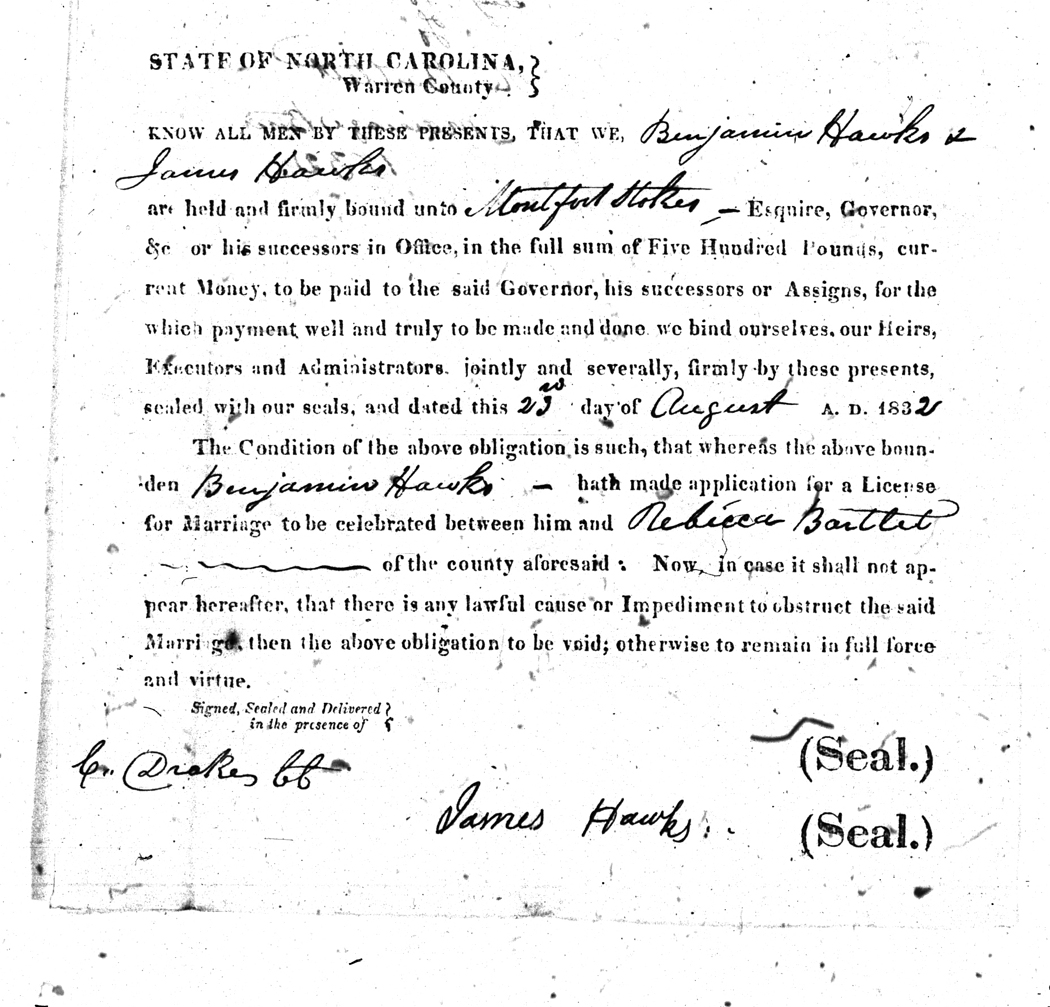 STATE OF NORTH CAROLINA,
Warren County
KNOW ALL MEN BY THESE PRESENTS, THAT WE, Benjamin Hawks &
James Hawks
are held and firmly bound unto Montfort Stokes — Esquire, Governor,
&c or his successors in Office, in the full sum of Five Hundred Pounds, cur-
rent Money, to be paid to the said Governor, his successors or Assigns, for the
which payment, well and truly to be made and done we bind ourselves, our Heirs,
Executors and Administrators, jointly and severally, firmly by these presents,
sealed with our seals, and dated this 23rd day of August A. D. 1832
The Condition of the above obligation is such, that whereas the above boun-
den Benjamin Hawks — hath made application for a License
for Marriage to be celebrated between him and Rebecca Bartlet
of the county aforesaid : Now, in case it shall not ap-
pear hereafter, that there is any lawful cause or Impediment to obstruct the said
Marriage, then the above obligation to be void; otherwise to remain in full force
and virtue.
Signed, Sealed and Delivered
in the presence of
(Seal.)
C. Drake CC
James Hawks (Seal.)